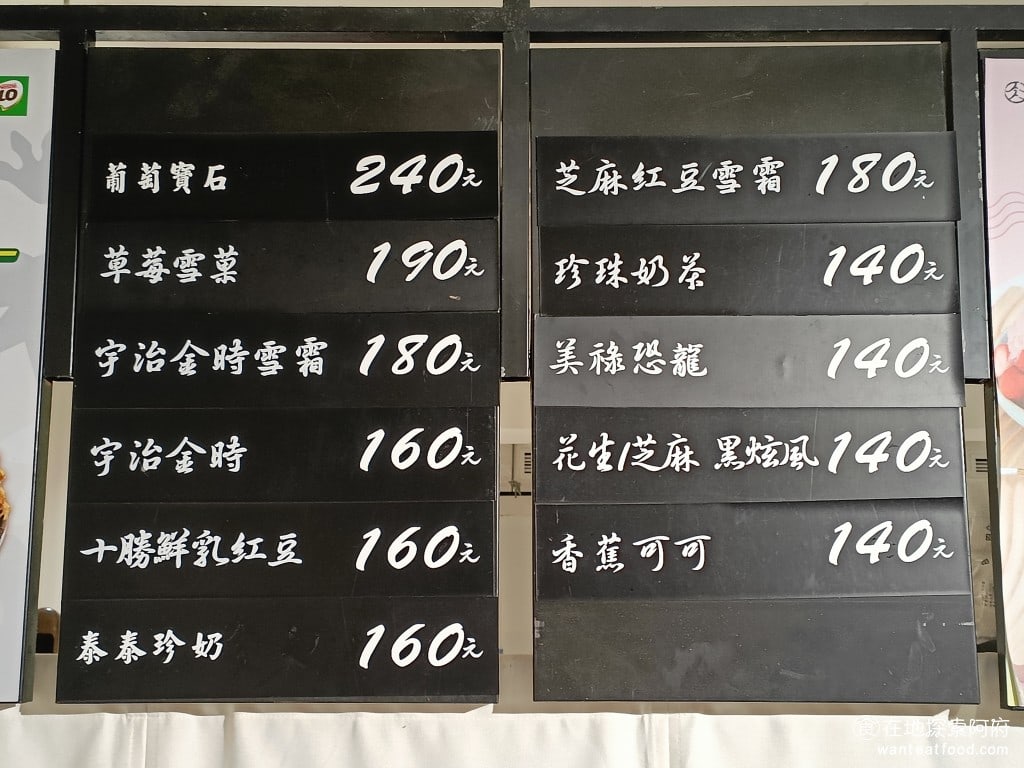 LO
葡萄寶石 240元
草莓雪菓 190元
宇治金時雪霜 180元
宇治金時 160元
十勝鮮乳紅豆 160元
泰泰珍奶 160元
芝麻紅豆雪霜 180元
珍珠奶茶 140元
美祿恐龍 140元
花生/芝麻 黑炫風 140元
香蕉可可 140元
食在地探索阿府
wanteatfood.com